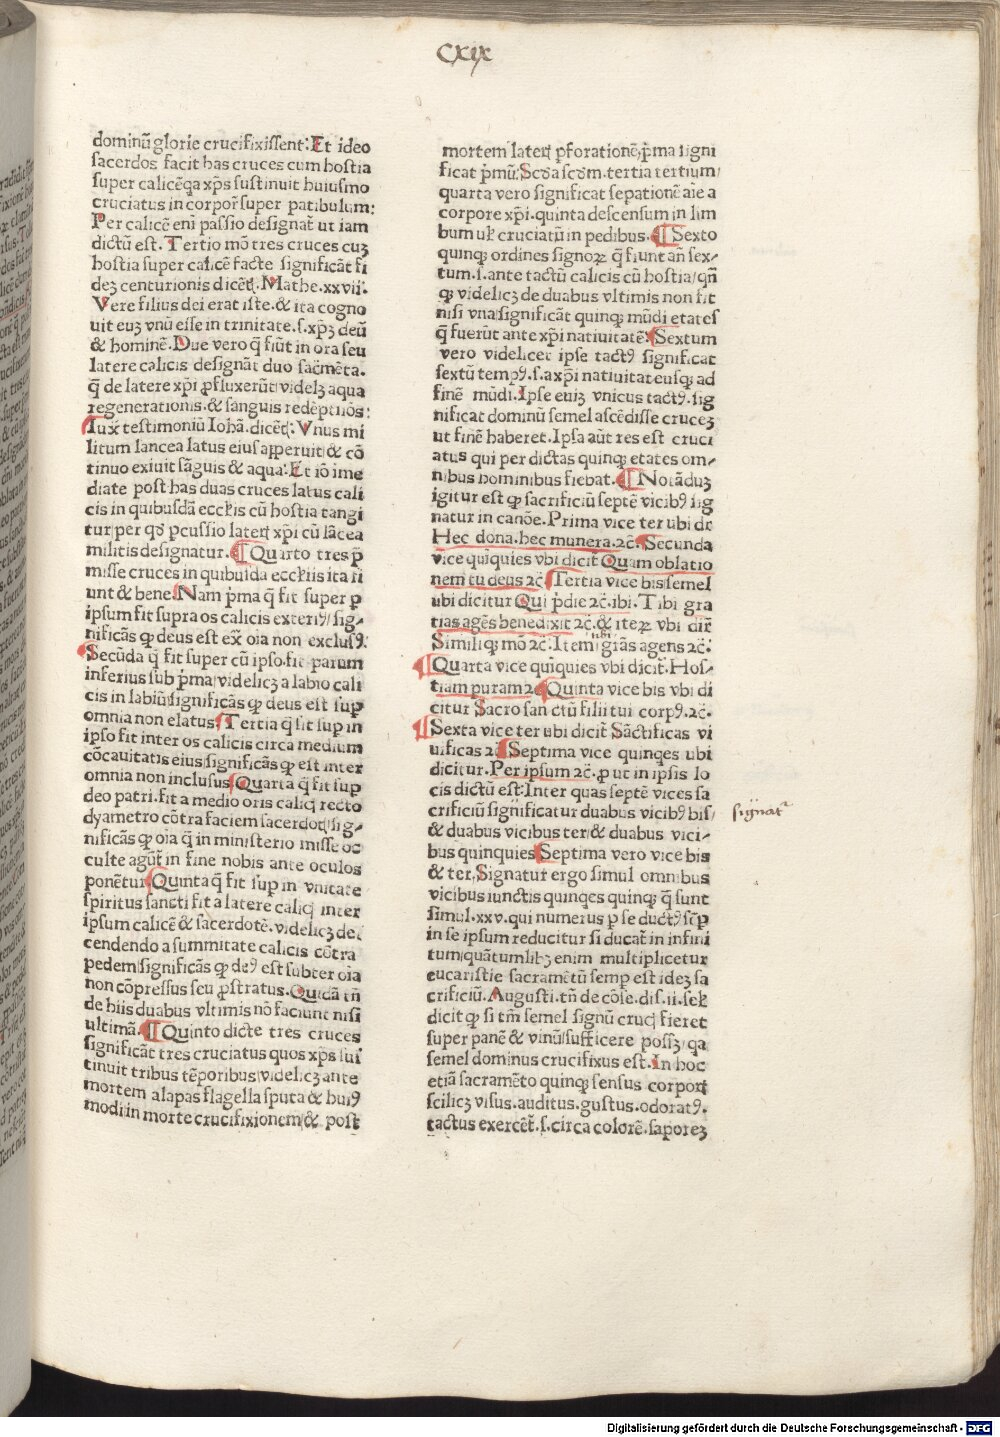 CXIX
dominū glorie crucifixissent: Et ideo
sacerdos facit has cruces cum hostia
super calicē qa xp̄s sustinuit huiusmo
cruciatus in corpor̄ super patibulum:
Per calicē eni passio designat̄ ut iam
dictū est. Tertio mō tres cruces cuꝫ
hostia super calicē facte significāt fi
deꝫ centurionis dicēt̄. Mathe. xxvii.
Vere filius dei erat iste. & ita cogno
uit euꝫ vnū esse in trinitate. s. xp̄ꝫ deū
& hominē. Due vero q̄ fiūt in ora seu
latere calicis designāt duo sacr̄mēta.
q̄ de latere xp̄i ꝓfluxerūt videlꝫ aqua
regenerationis. & sanguis redēptiōs:
Iux̄ testimoniū Iohā. dicēt̄: Vnus mi
litum lancea latus eius apperuit & cō
tinuo exiuit sāguis & aqua: Et iō ime
diate post has duas cruces latus cali
cis in quibusdā eccl̄iis cū hostia tangi
tur/ per qd̄ ꝑcussio laterꝭ xp̄i cū lācea
militis designatur. ¶ Quarto tres p̄
misse cruces in quibusda eccl̄iis ita fi
unt & bene. Nam p̄ma q̄ fit super ꝑ
ipsum fit supra os calicis exteriꝰ/ sig⸗
nificās ꝙ deus est ex̄ oīa non exclusꝰ.
Secūda q̄ fit super cū ipso. fit parum
inferius sub p̄ma/ videlicꝫ a labio cali
cis in labiū significās ꝙ deus est sup
omnia non elatus. Tertia q̄ fit sup in
ipso fit inter os calicis circa medium
cōcauitatis eius significās ꝙ est inter
omnia non inclusus. Quarta q̄ fit sup
deo patri. fit a medio oris calicꝭ recto
dyametro cōtra faciem sacerdotꝭ/ sig⸗
nificās ꝙ oīa q̄ in ministerio misse oc
culte agūt̄ in fine nobis ante oculos
ponētur. Quinta q̄ fit sup in vnitate
spiritus sancti fit a latere calicꝭ inter
ipsum calicē & sacerdotē. videlicꝫ de⸗
cendendo a summitate calicis cōtra
pedem/ significās ꝙ deꝰ est subter oīa
non cōpressus seu ꝓstratus. Quidā tn̄
de hiis duabus vltimis nō faciunt nisi
ultimā. ¶ Quinto dicte tres cruces
significāt tres cruciatus quos xp̄s sui
tinuit tribus tēporibus/ videlicꝫ ante
mortem alapas flagella sputa & huiꝰ
modi/ in morte crucifixionem/ & post
mortem laterꝭ ꝑforationē/ p̄ma signi
ficat p̄mū. Scd̄a scd̄m. tertia tertium/
quarta vero significat sepationē aīe a
corpore xp̄i. quinta descensum in lim
bum ul̄ cruciatū in pedibus. ¶ Sexto
quinqꝫ ordines signoꝝ q̄ fiunt an̄ sex⸗
tum. s. ante tactū calicis cū hostia/ qn̄
qꝫ videlicꝫ de duabus vltimis non fit
nisi vna/ significāt quinqꝫ mūdi etates
q̄ fuerūt ante xp̄i natiuitatē. Sextum
vero videlicet ipse tactꝰ significat
sextū tempꝰ. s. a xp̄i natiuitate usqꝫ ad
finē mūdi. Ipse enim vnicus tactꝰ. sig
nificat dominū semel ascēdisse cruceꝫ
ut finē haberet. Ipsa aūt res est cruci
atus qui per dictas quinqꝫ etates om⸗
nibus hominibus fiebat. ¶ Notāduꝫ
igitur est ꝙ sacrificiū septē vicibꝰ sig
natur in canōe. Prima vice ter ubi dr̄
Hec dona. hec munera. ⁊c̄. Secunda
vice quīquies vbi dicit̄ Quam oblatio
nem tu deus ⁊c̄. Tertia vice bis/ semel
ubi dicitur Qui p̄die ⁊c̄. ibi. Tibi gra
tias agēs benedixit ⁊c̄. & iteꝝ vbi dir̄
Similiqꝫ mō ⁊c̄. Item tibi grās agens ⁊c̄.
¶ Quarta vice quīquies vbi dicit̄. Hos⸗
tiam puram ⁊c̄. Quinta vice bis vbi di
citur Sacrosanctū filii tui corpꝰ. ⁊c̄.
¶ Sexta vice ter ubi dicit̄ Sāctificas vi
uificas ⁊c̄. Septima vice quinqes ubi
dicitur. Per ipsum ⁊c̄. ꝓut in ipsis lo
cis dictū est. Inter quas septē vices sa
crificiū significatur duabus vicibꝰ bis/
& duabus vicibus ter/ & duabus vici⸗
bus quinquies. Septima vero vice bis
& ter. Signatur ergo simul omnibus
vicibus iunctis quinqes quinqꝫ q̄ sunt
simul. xxv. qui numerus ꝑ se ductꝰ sēꝑ
in se ipsum reducitur si ducat̄ in infini
tum/ quātumlibꝫ enim multiplicetur
eucaristie sacramētū semꝑ est ideꝫ sa
crificiū. Augusti. tn̄ de cōse. dis. ii. sel̄
dicit ꝙ si tm̄ semel signū crucꝭ fieret
super panē & vinū/ sufficere possꝫ/ qa
semel dominus crucifixus est. In hoc
etiā sacramēto quinqꝫ sensus corporꝭ
scilicꝫ visus. auditus. gustus. odoratꝰ.
tactus exercēt̄. s. circa colorē. saporeꝫ
signatr
Digitalisierung gefördert durch die Deutsche Forschungsgemeinschaft - DFG